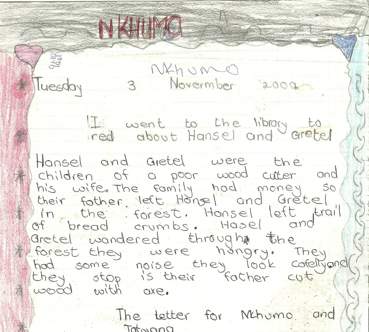 NKHUMO
Nkhumo
Tuesday 3 Novermber 2009
I went to the library to
red about Hansel and Gretel
Hansel and Gretel were the
children of a poor wood cutter and
his wife. The family had money so
their father left Hansel and Gretel
in the forest. Hansel left trail
of bread crumbs. Hasel and
Gretel wondered through the
forest they were hungry. They
had some noise they look carefully and
they stop is their father cut
wood with axe.
The letter for Mkhumo and